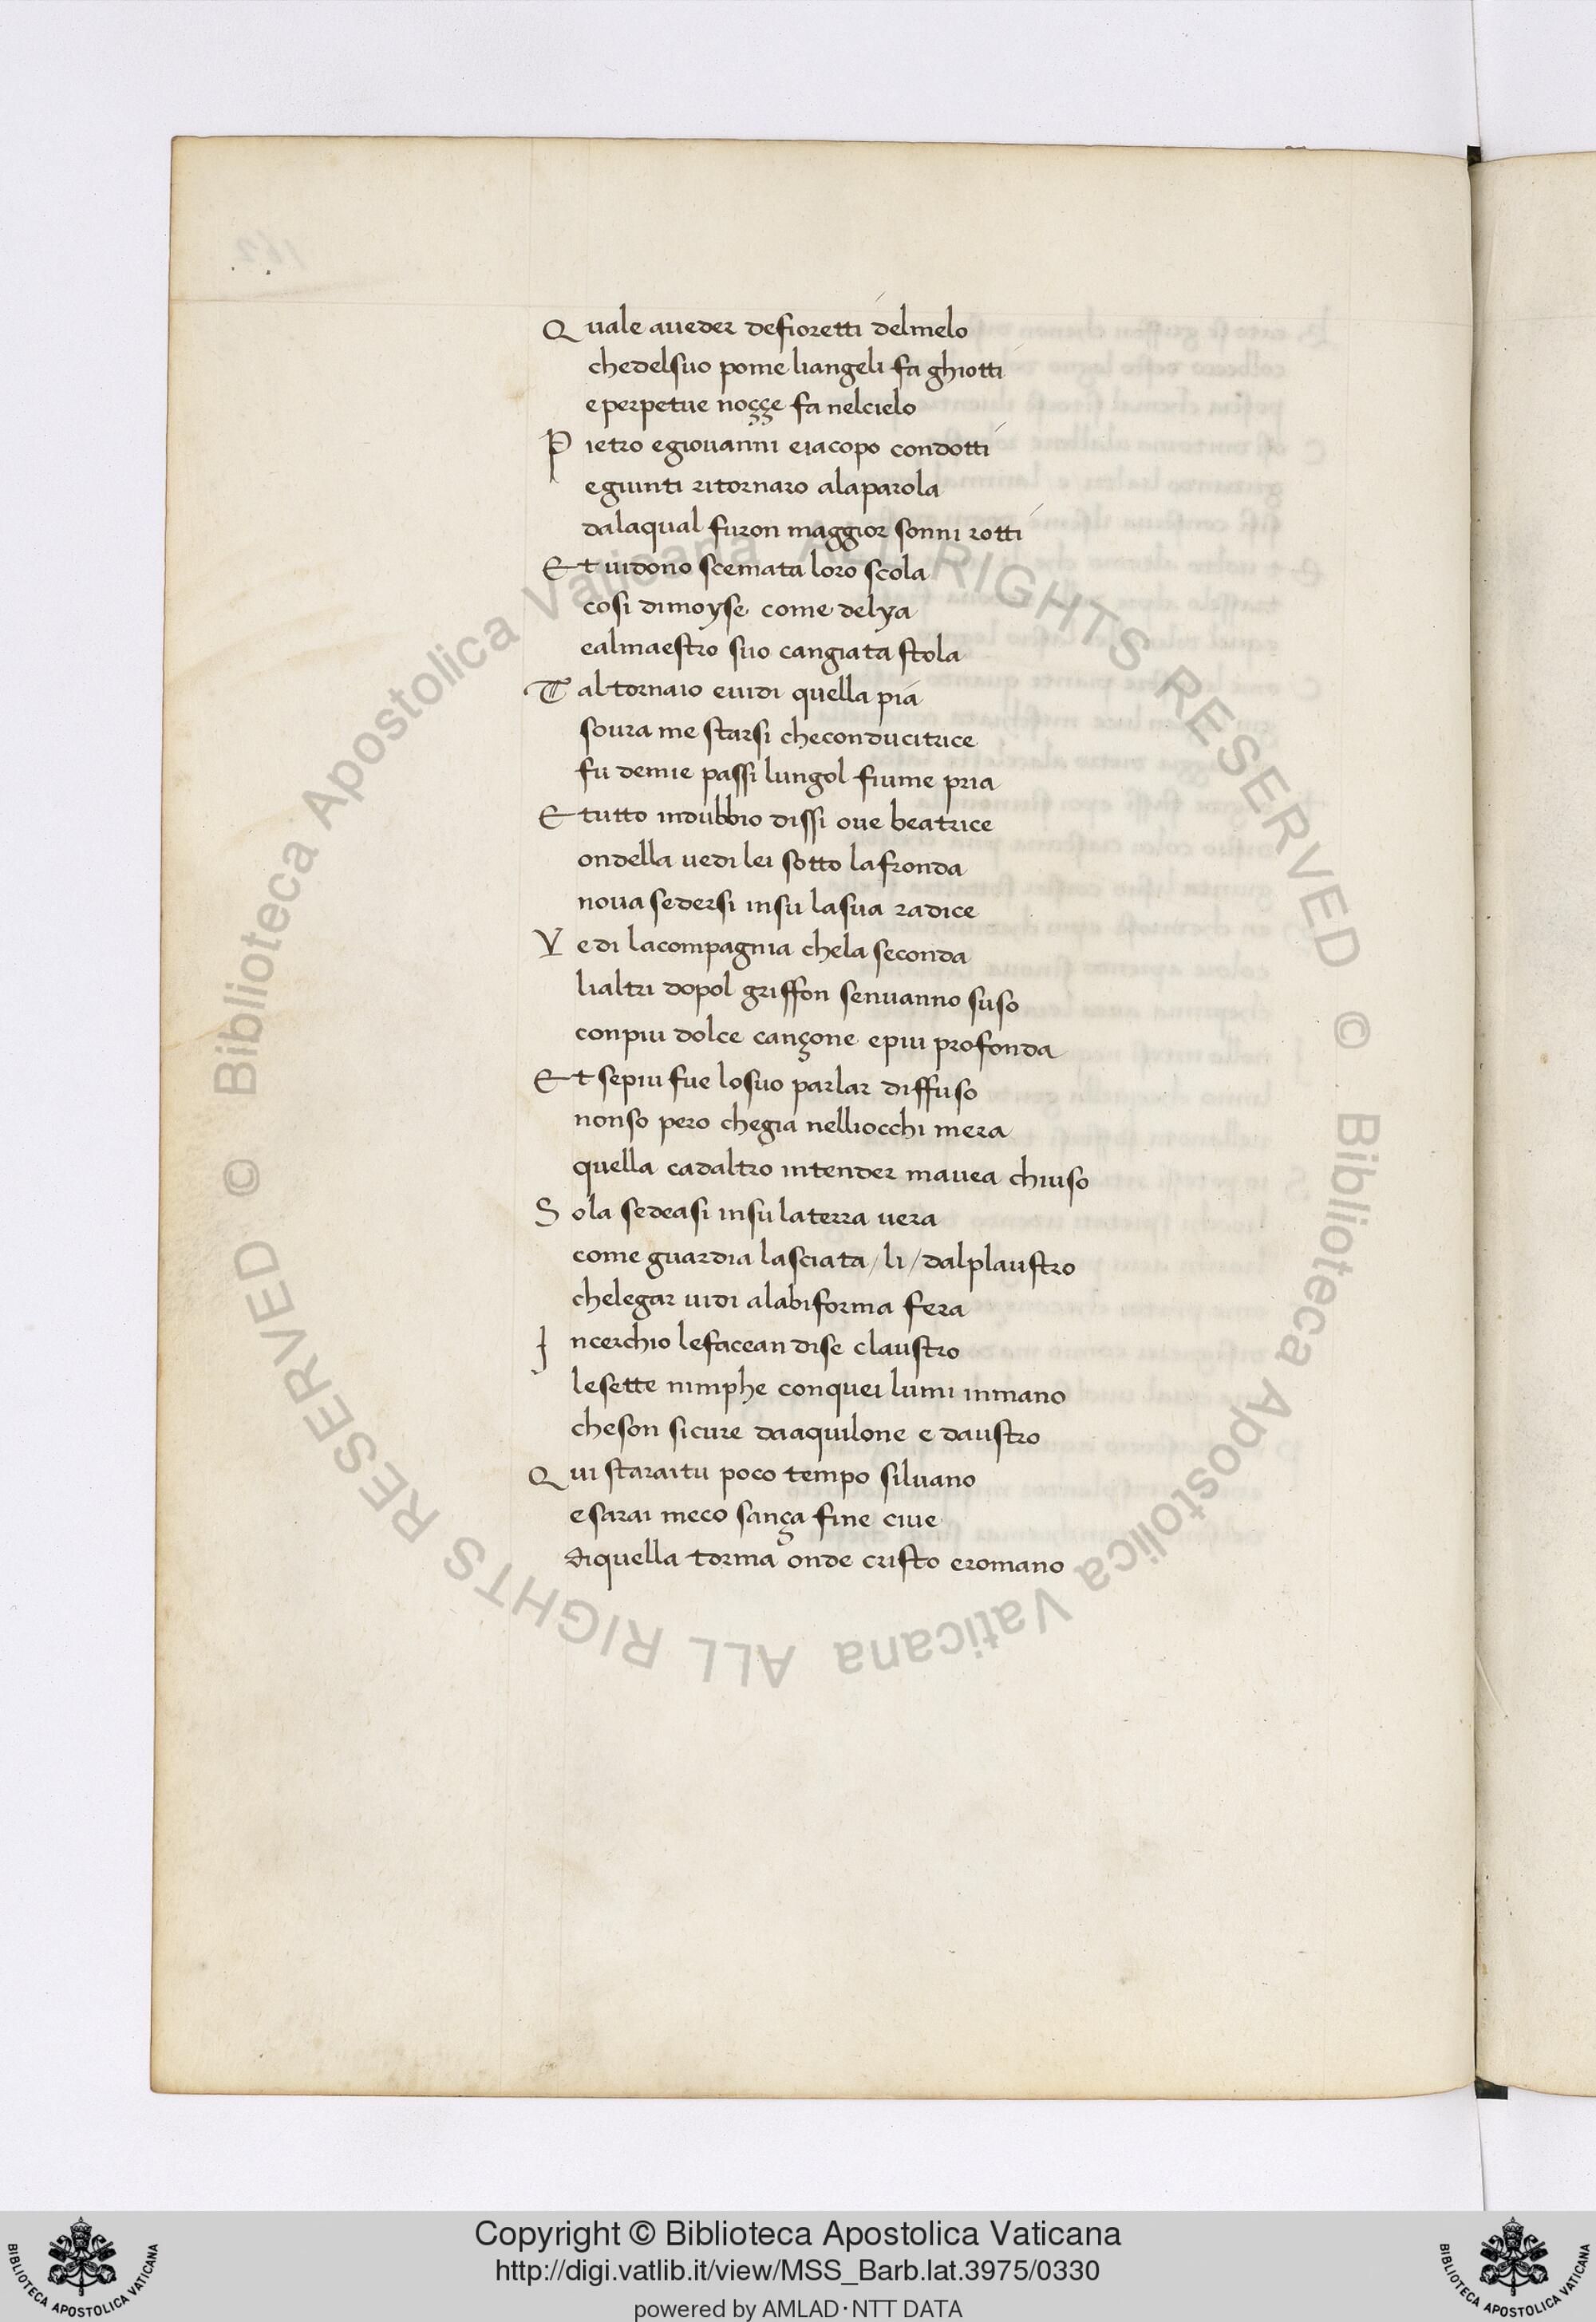 Quale aueder defioretti delmelo
chedelsuo pome liangeli fa ghiotti
eperpetue noççe fa nelcielo
Pietro egiouanni eiacopo condotti
egiunti ritornaro alaparola
dalaqual furon maggior sonni rotti
Et uidono scemata loro scola
cosi dimoyse come delya
ealmaestro suo cangiata stola
Tal tornaio euidi quella pia
soura me starsi checonducitrice
fu demie passi lungol fiume pria
Et tutto indubbio dissi oue beatrice
ondella uedi lei sotto lafronda
noua sedersi insu lasua radice
Vedi lacompagnia chela seconda
lialtri dopol griffon senuanno suso
conpiu dolce cançone epiu profonda
Et sepiu fue losuo parlar diffuso
nonso pero chegia nelliocchi mera
quella cadaltro intender mauea chiuso
Sola sedeasi insu laterra uera
come guardia lasciata/li/dalplaustro
chelegar uidi alabiforma fera
Incerchio lefacean dise claustro
lesette nimphe conquei lumi inmano
cheson sicure daaquilone e daustro
Qui staraitu poco tempo siluano
esarai meco sança fine ciue
diquella torma onde cristo eromano
© Biblioteca Apostolica Vaticana ALL RIGHTS RESERVED © Biblioteca Apostolica Vaticana ALL RIGHTS RESERVED
Copyright © Biblioteca Apostolica Vaticana
http://digi.vatlib.it/view/MSS_Barb.lat.3975/0330
powered by AMLAD·NTT DATA
BIBLIOTECA APOSTOLICA VATICANA
BIBLIOTECA APOSTOLICA VATICANA